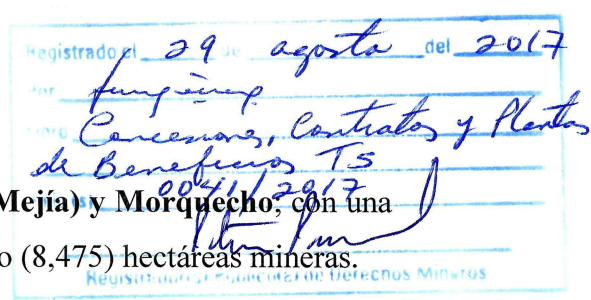 Registrado el 29 de agosto del 2017
Por
Libro Concesiones, Contratos y Plantas
de Beneficios T5
0041/2017
Mejía) y Morquecho, con una
o (8,475) hectáreas mineras.
Derechos Mineros